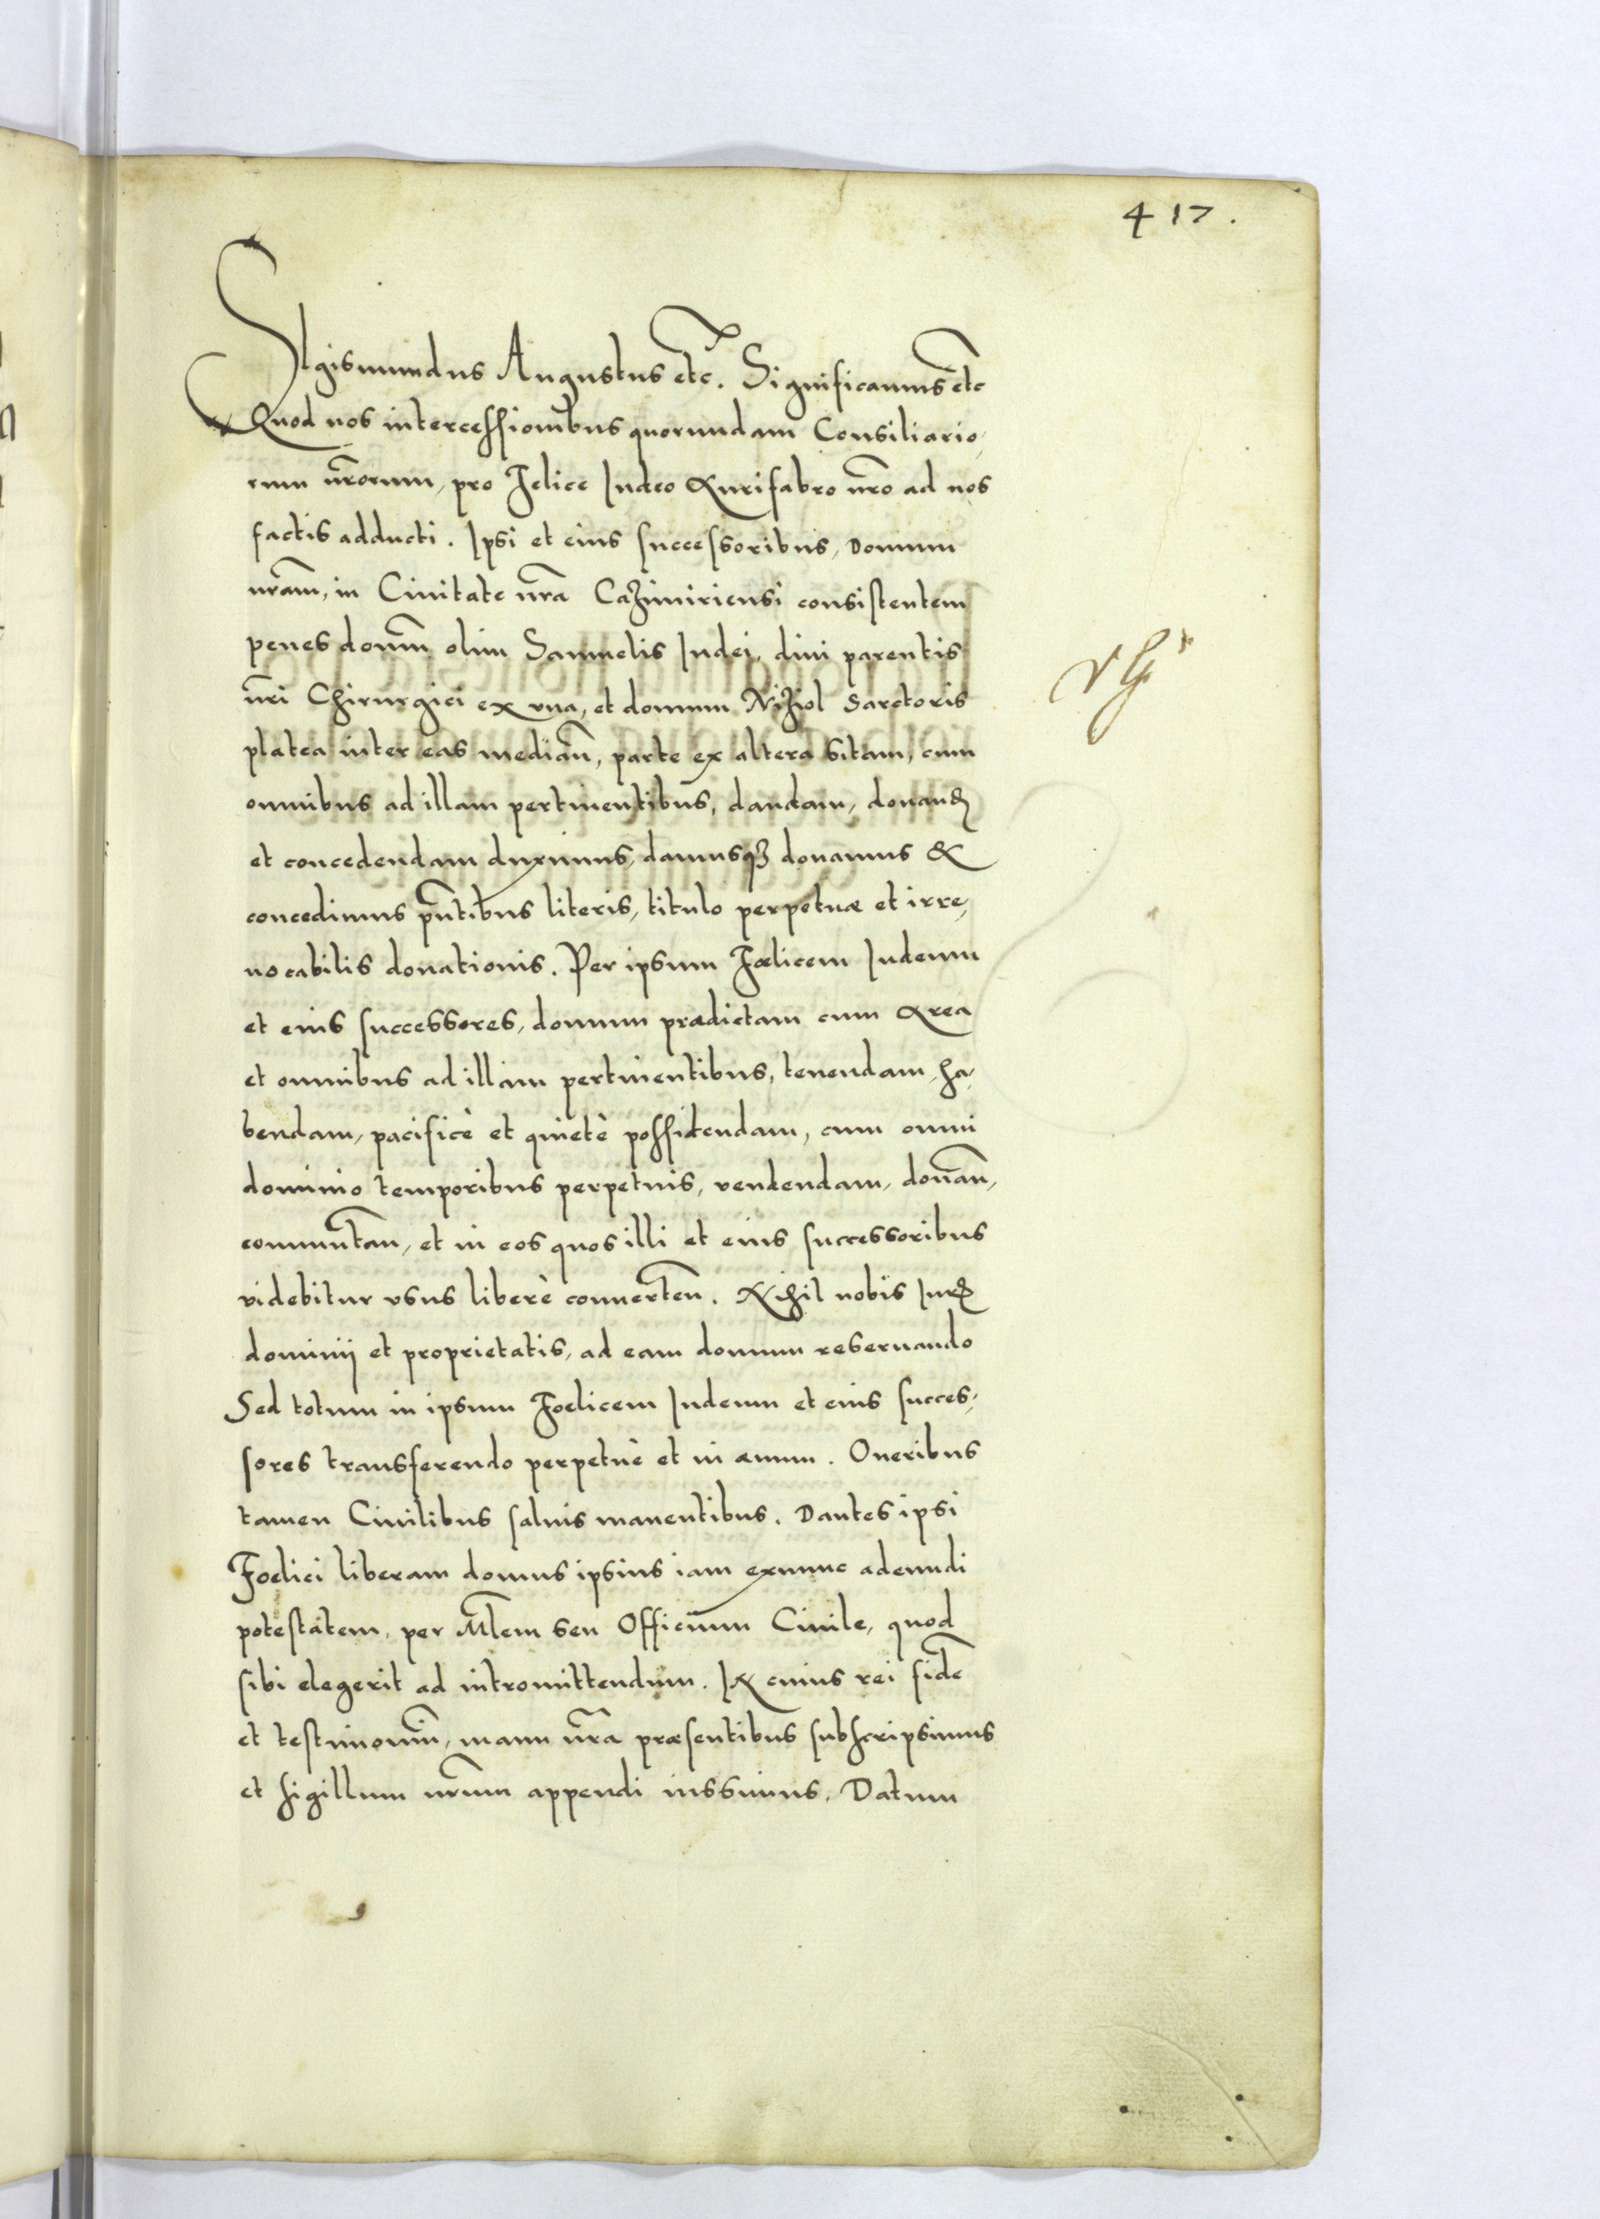 417.
Sigismundus Augustus etc. Significamus etc
Quod nos intercessionibus quorundam Consiliario,
rum nr̃orum, pro Felice Iudeo Aurifabro nr̃o ad nos
factis adducti. Ipsi et eius successoribus, Domum
nr̃am, in Ciuitate nr̃a Cazimiriensi consistentem
penes domũ olim Samuelis Iudei, diui parentis
nr̃i Chirurgici ex vna, et domum Niziol Sarctoris
platea inter eas median̄, parte ex altera sitam, cum
omnibus ad illam pertinentibus, dandam, donand̃
et concedendam duximus, damusqʒ donamus &
concedimus pñtibus literis, titulo perpetuæ et irre,
uocabilis donationis. Per ipsum Fœlicem Iudeum
et eius successores, domum prædictam cum Area
et omnibus ad illam pertinentibus, tenendam, ha,
bendam, pacificè et quietè possidendam, cum omni
dominio temporibus perpetuis, vendendam, donan̄,
commutan̄, et in eos quos illi et eius successoribus
videbitur vsus liberè conuerten̄. Nihil nobis Iur̃
dominij et proprietatis, ad eam domum reseruando
Sed totum in ipsum Foelicem Iudeum et eius succes,
sores transferendo perpetuè et in æuum. Oneribus
tamen Ciuilibus saluis manentibus. Dantes ipsi
Foelici liberam domus ipsius iam exnunc adeundi
potestatem, per Mltem seu Officium Ciuile, quod
sibi elegerit ad intromittendum. IN cuius rei fidẽ
et testimoniũ, manu nr̃a præsentibus subscripsimus
et sigillum nr̃um appendi iussimus. Datum